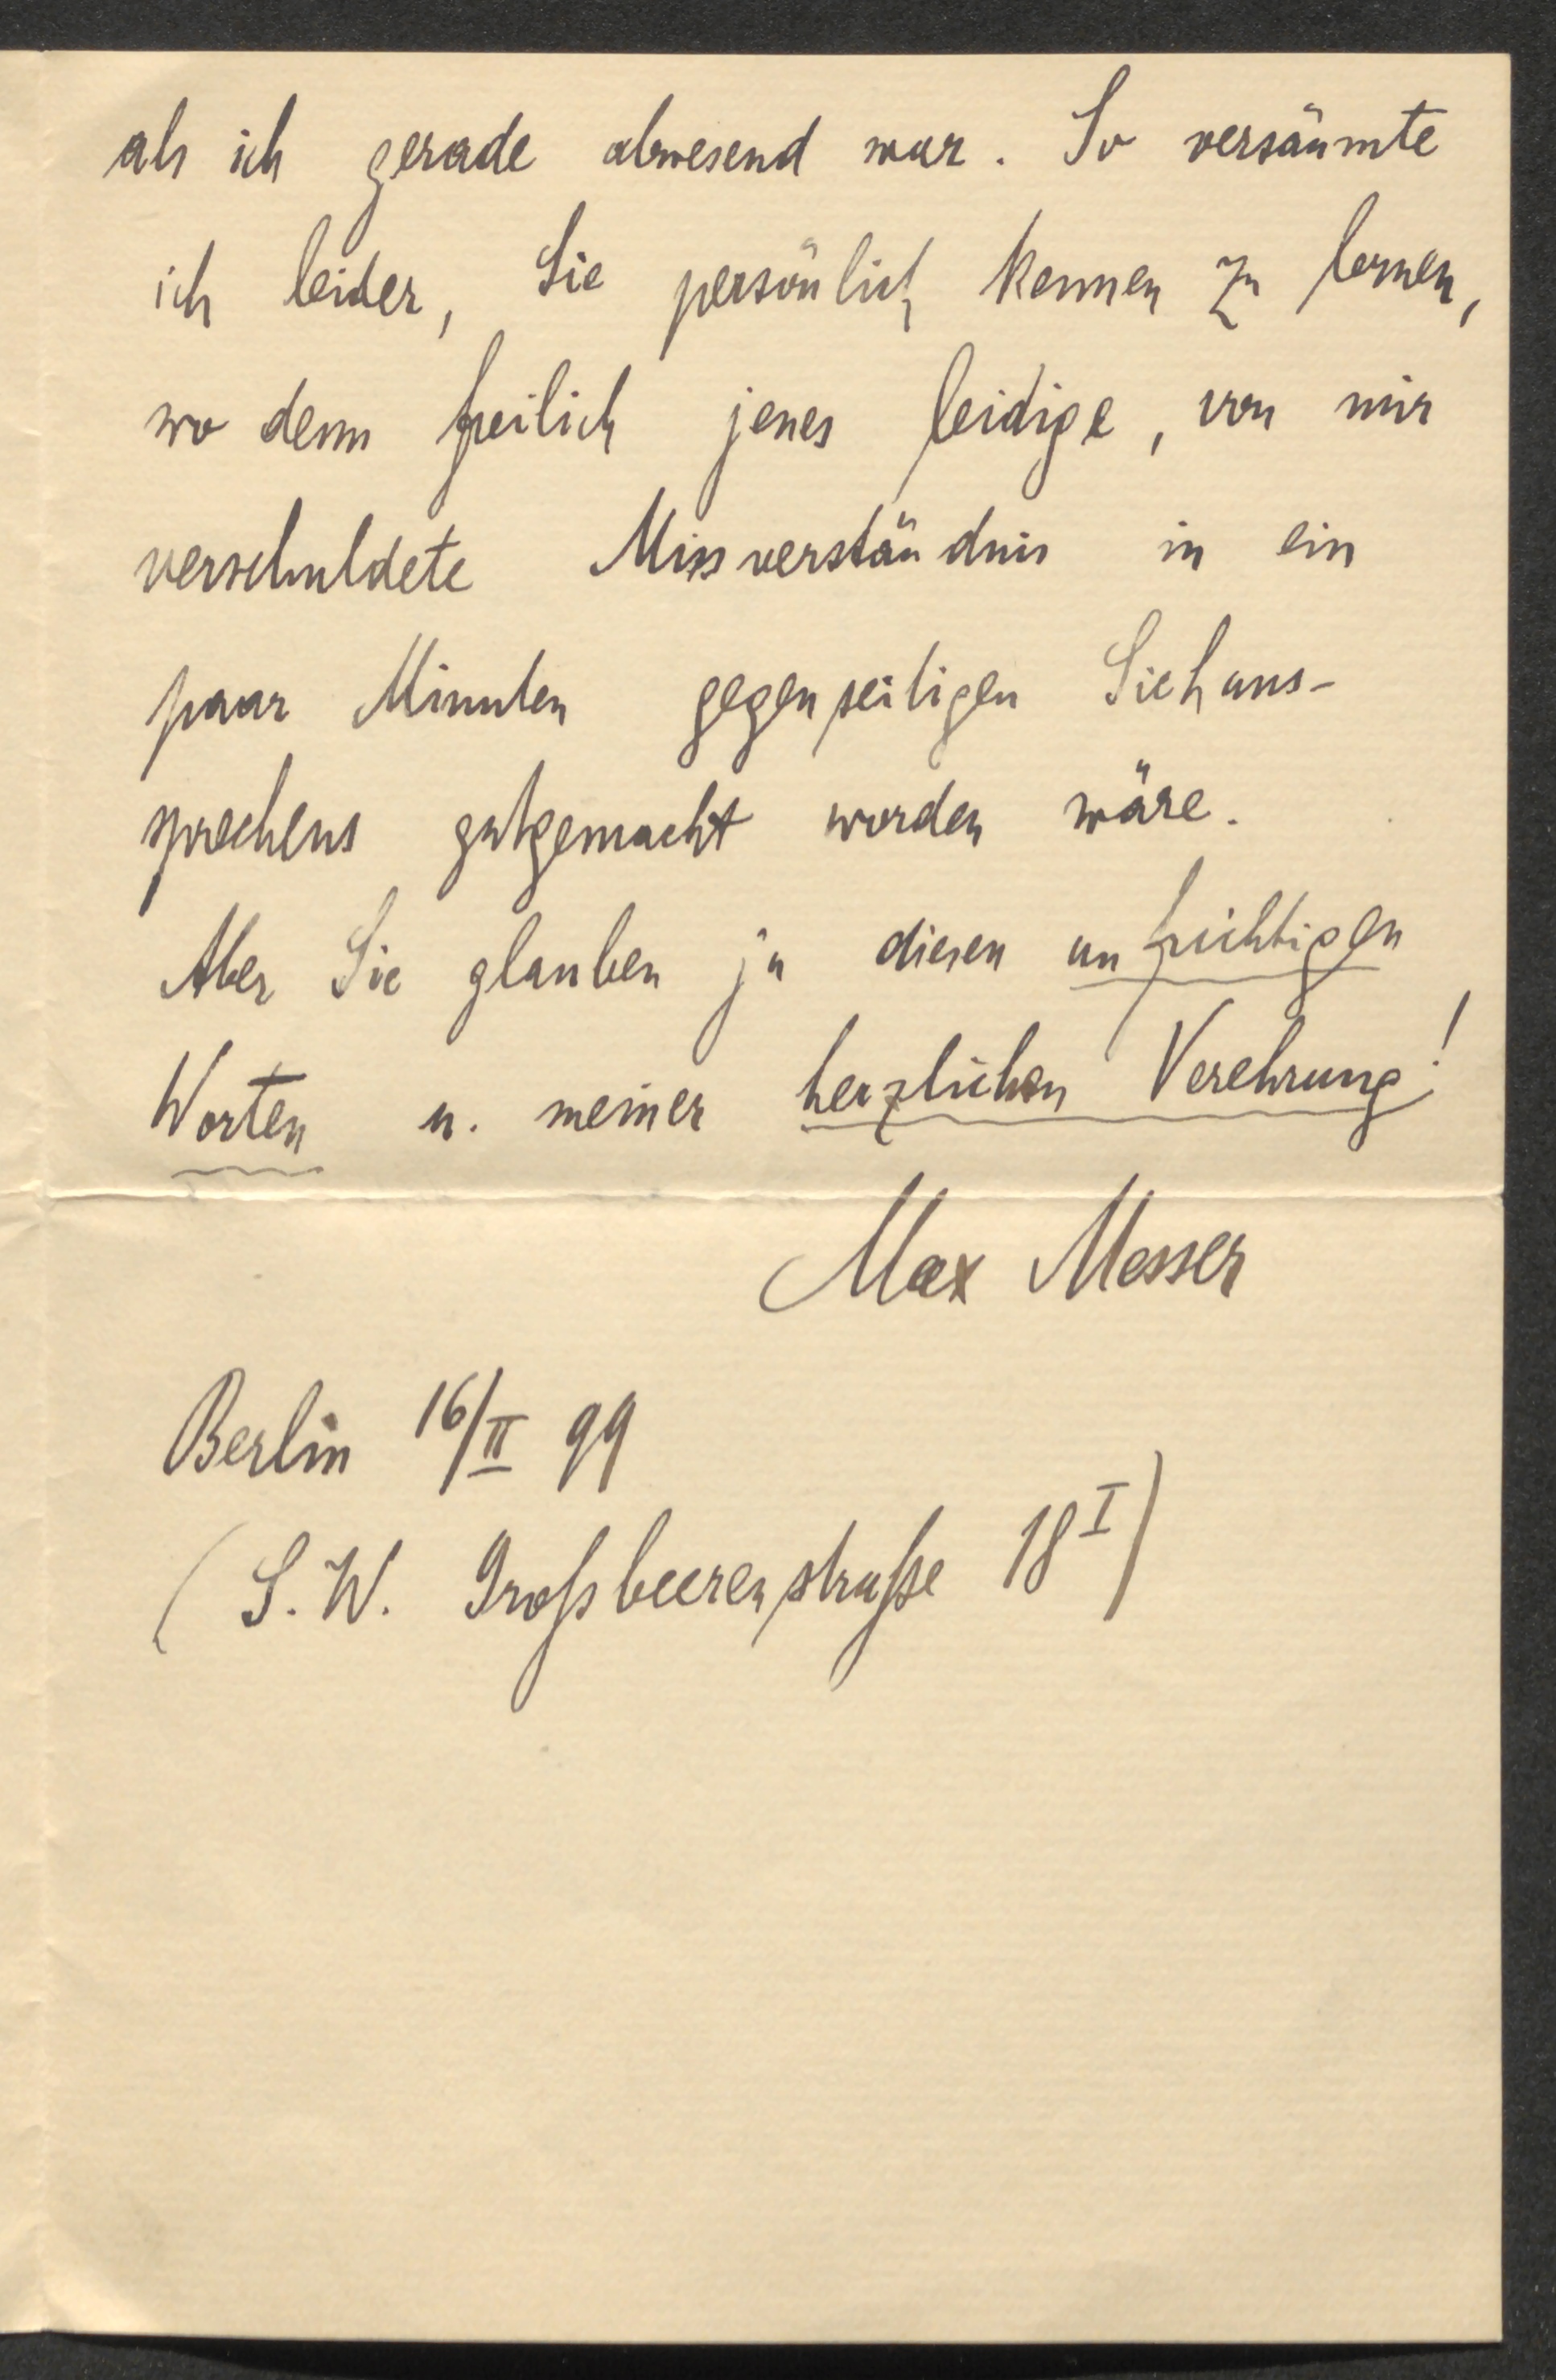 als ich gerade abwesend war. So versäumte
ich leider, Sie persönlich kennen zu lernen,
wo denn freilich jenes leidige, von mir
verschuldete Missverständnis in ein
paar Minuten gegenseitigen Sichaus-
sprechens gutgemacht worden wäre.
Aber Sie glauben ja diesen aufrichtigen
Worten u. meiner herzlichen Verehrung!
Max Messer
Berlin 16/II 99
(S. W. Großbeerenstraße 18 I)